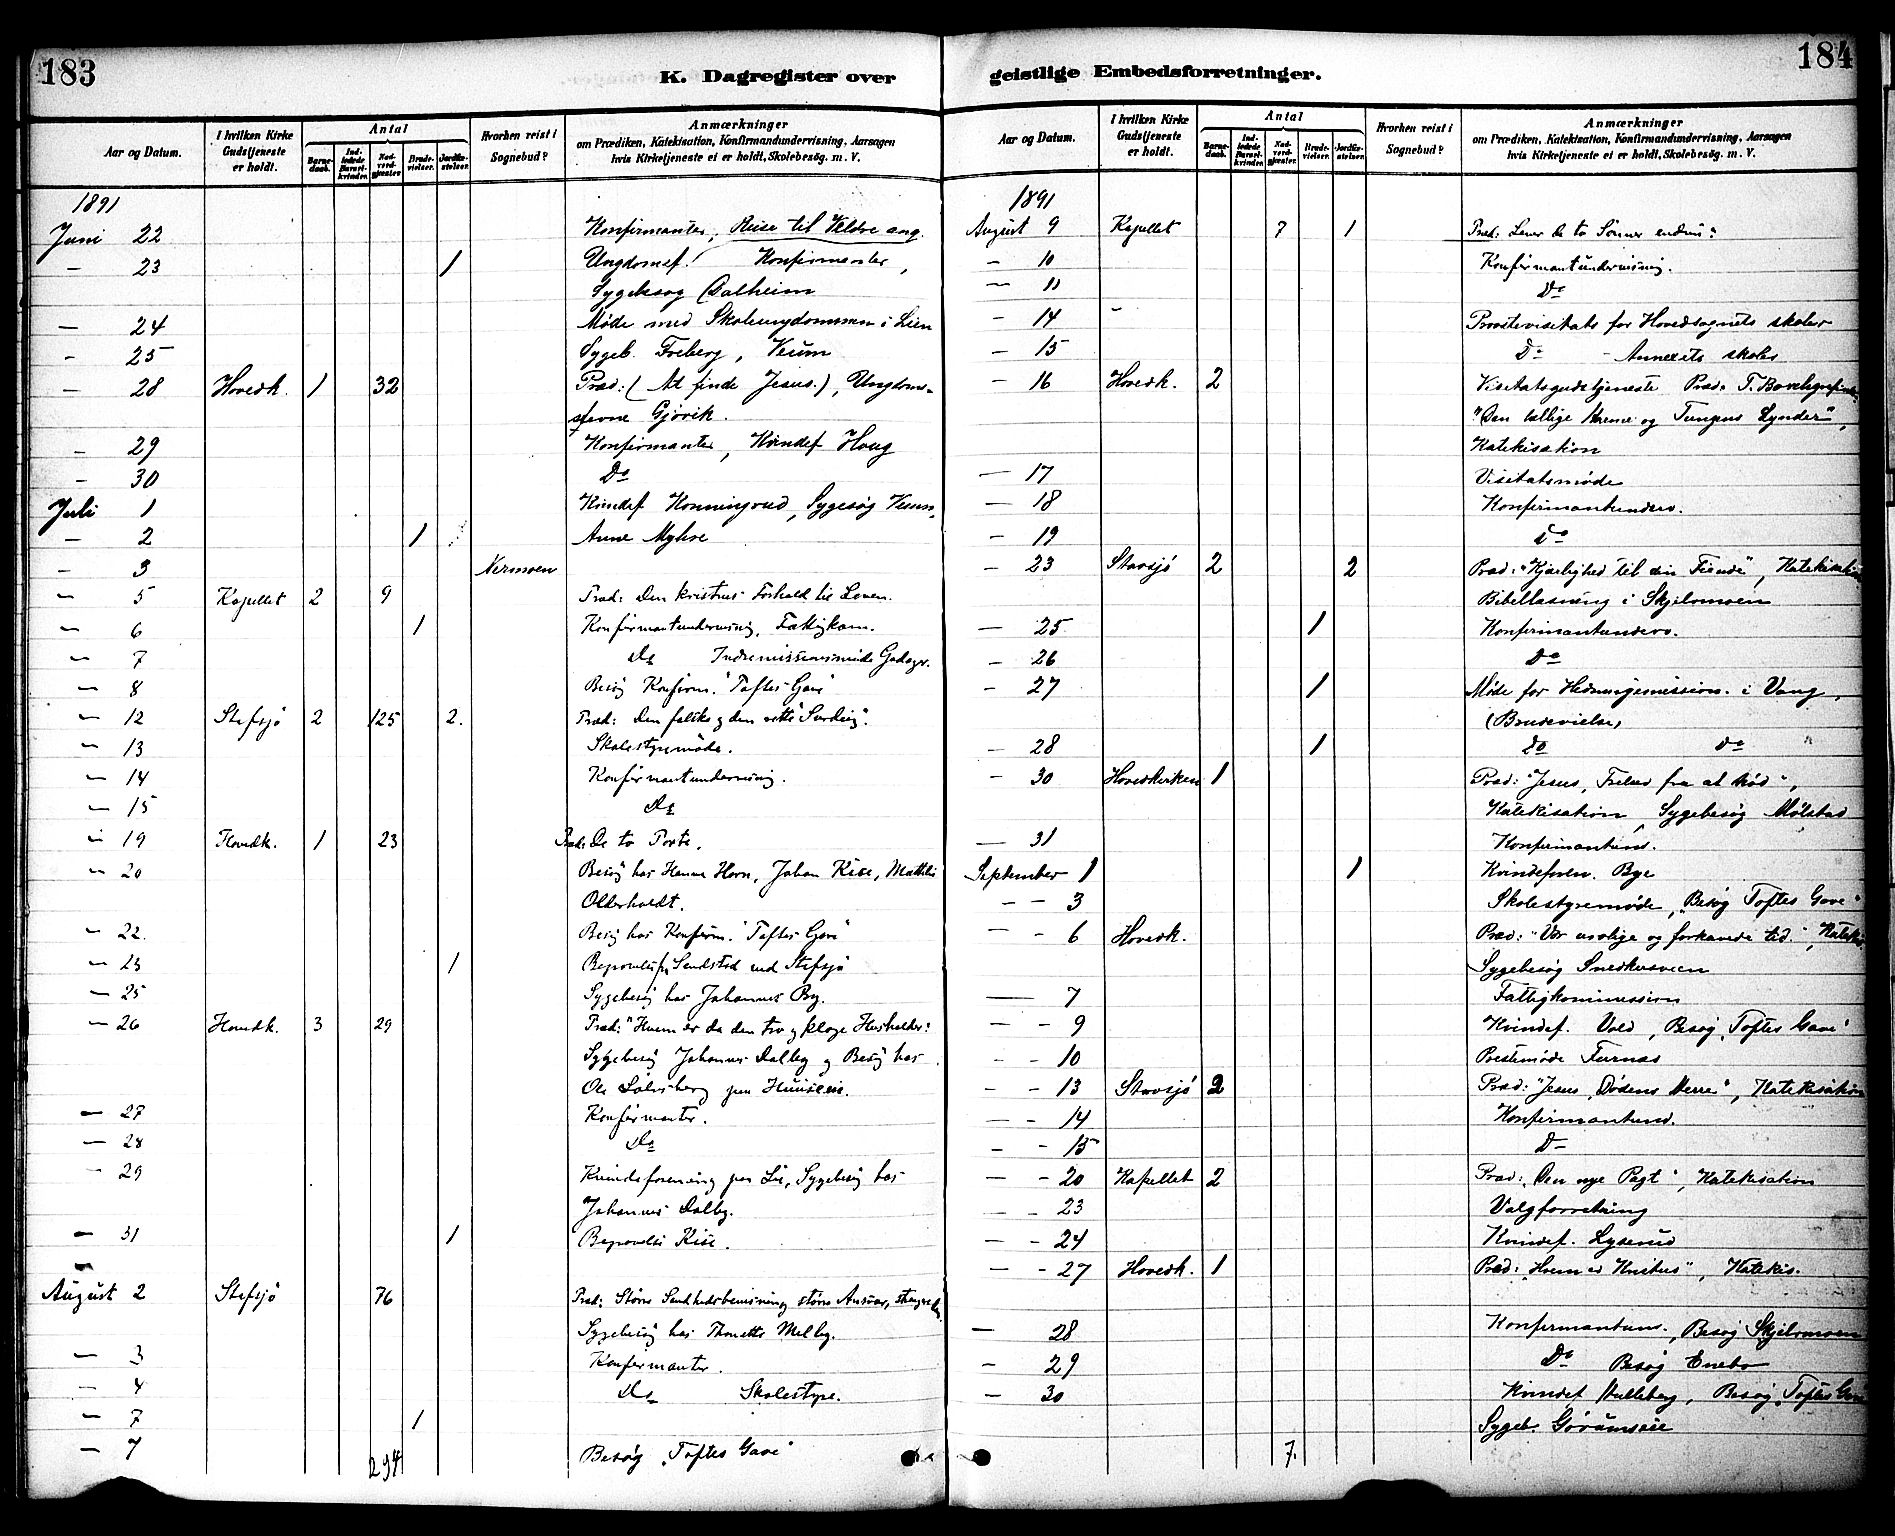 183
K. Dagregister over
Aar og Datum.
I hvilken Kirke Gudstjeneste er holdt.
Antal
Barnedaab.
Indledede Barselkvinder.
Nadverdgjæster.
Brudevielser.
Jordfæstelser.
Hvorhen reist i Sognebud?
Anmærkninger
om Prædiken, Katekisation, Konfirmandundervisning, Aarsagen
hvis Kirketjeneste ei er holdt, Skolebesøg. m. V.
1891
Juni 22 Konfirmanter, Reise til Veldre ang.
— 23 1 Ungdomsf. Konfirmanter,
Sygebesøg Dalheim
— 24 Møde med Skoleungdommen i Lien
- 25 Sygeb. Freberg, Veum
- 28 Hovedk. 1 32 Præd: (At finde Jesus.), Ungdoms-
stevne Gjøvik.
- 29 Konfirmanter, Kvindef Houg
- 30 Do
Juli 1 Kvindef Honningrud, Sygesøg Veum,
— 2 1 Anne Myhre
— 3 Nermoen
— 5 Kapellet 2 9 Præd: Den kristnes Forhold til Loven.
— 6 1 Konfirmantundervisnig, Fattigkom.
— 7 Do Indremissionsmøde
— 8 Besøg Konfirm. "Toftes Gave"
— 12 Stefsjø 2 125 2. Præd: Den falske og den rette
— 13 Skolestyremøde.
— 14 Konfirmantundervisnig.
— 15 Do
— 19 Hovedk. 1 23 Præd: De to Porte.
— 20 Besøg hos Hanne Horn, Johan Kise, Mathilde
Olderholdt.
— 22. Besøg hos Konfirm. "Toftes Gave"
— 23 1 Begravelse fr Sendstad ved Stefsjø
— 25 Sygebesøg hos Johannes By.
— 26 Hovedk. 3 29 Præd: "Hvem er da den tro og kloge Husholder?
Sygebesøg Johannes Dalby og Besøg hos
Ole Sølvsberg
— 27 Konfirmanter.
— 28 Do
— 29 Kvindeforening paa Lie, Sygebesøg hos
Johannes Dalby.
— 31 1 Begravelse Kise.
August 2 Stefsjø 76 Præd: Større Ansvar,
Sygebesøg hos Thonette Melby.
— 3 Konfirmanter.
— 4 Do Skolestyre.
— 7 1
— 7 Besøg "Toftes Gave"
294
184
geistlige Embedsforretninger.
Aar og Datum.
I hvilken Kirke Gudstjeneste er holdt.
Antal
Barnedaab.
Indledede Barselkvinder.
Nadverdgjæster.
Brudevielser.
Jordfæstelser.
Hvorhen reist i Sognebud?
Anmærkninger
om Prædiken, Katekisation, Konfirmandundervisning, Aarsagen
hvis Kirketjeneste ei er holdt, Skolebesøg. m. V.
1891
August 9 Kapellet 7 1 Præd: Lever de to Sønner endnu?
— 10 Konfirmantundervisnig.
— 11 Do
— 14 Provstevisitats for Hovedsognets skoler
— 15 Do - Annexets skoler
— 16 Hovedk. 2 Visitatsgudstjeneste Præd:
"Den hellige Harme og Tungens Synder",
Katekisation
— 17 Visitatsmøde
— 18 Konfirmantunderv.
— 19 Do
— 23 Stavsjø 2 2 Præd: "Kjærlighed til din Fiende", Katekisation
Bibellæsning i Skjelsmoen
— 25 1 Konfirmantunderv.
— 26 Do
— 27 1 Møde for Hedningemission. i Vang,
(Brudevielse)
— 28 1 do do
— 30 Hovedkirken 1 Præd: "Jesus, Frelser fra al Nød",
Katekisation, Sygebesøg Mølstad
— 31 Konfirmantund.
September 1 1 Kvindeforen. Bye
— - 3 Skolestyremøde, Besøg "Toftes Gave"
— - 6 Hovedk. Præd: "Vor urolige og forkavede tid.", Katekis.
Sygebesøg Snedkersveen
— 7 Fattigkommission
— - 9 Kvindef. Vold, Besøg "Toftes Gave"
- - 10 Prestemøde Furnæs
— - 13 Stavsjø 2 Præd: "Jesus, Dødens Herre", Katekisation
— - 14 Konfirmantund.
- - 15 D-
— - 20 Kapellet 2 Præd: "Den nye Pagt", Katekisation
- - 23 Valgforretning
— - 24 Kvindef. Lyserud
— - 27 Hovedk. 1 Præd: "Hvem er Kristus", Katekis.
— 28 Konfirmantund., Besøg Skjelsmoen
— 29 Do Besøg Enebo
— 30 Kvindef Hulleberg, Besøg "Toftes Gave"
Sygeb.
7.